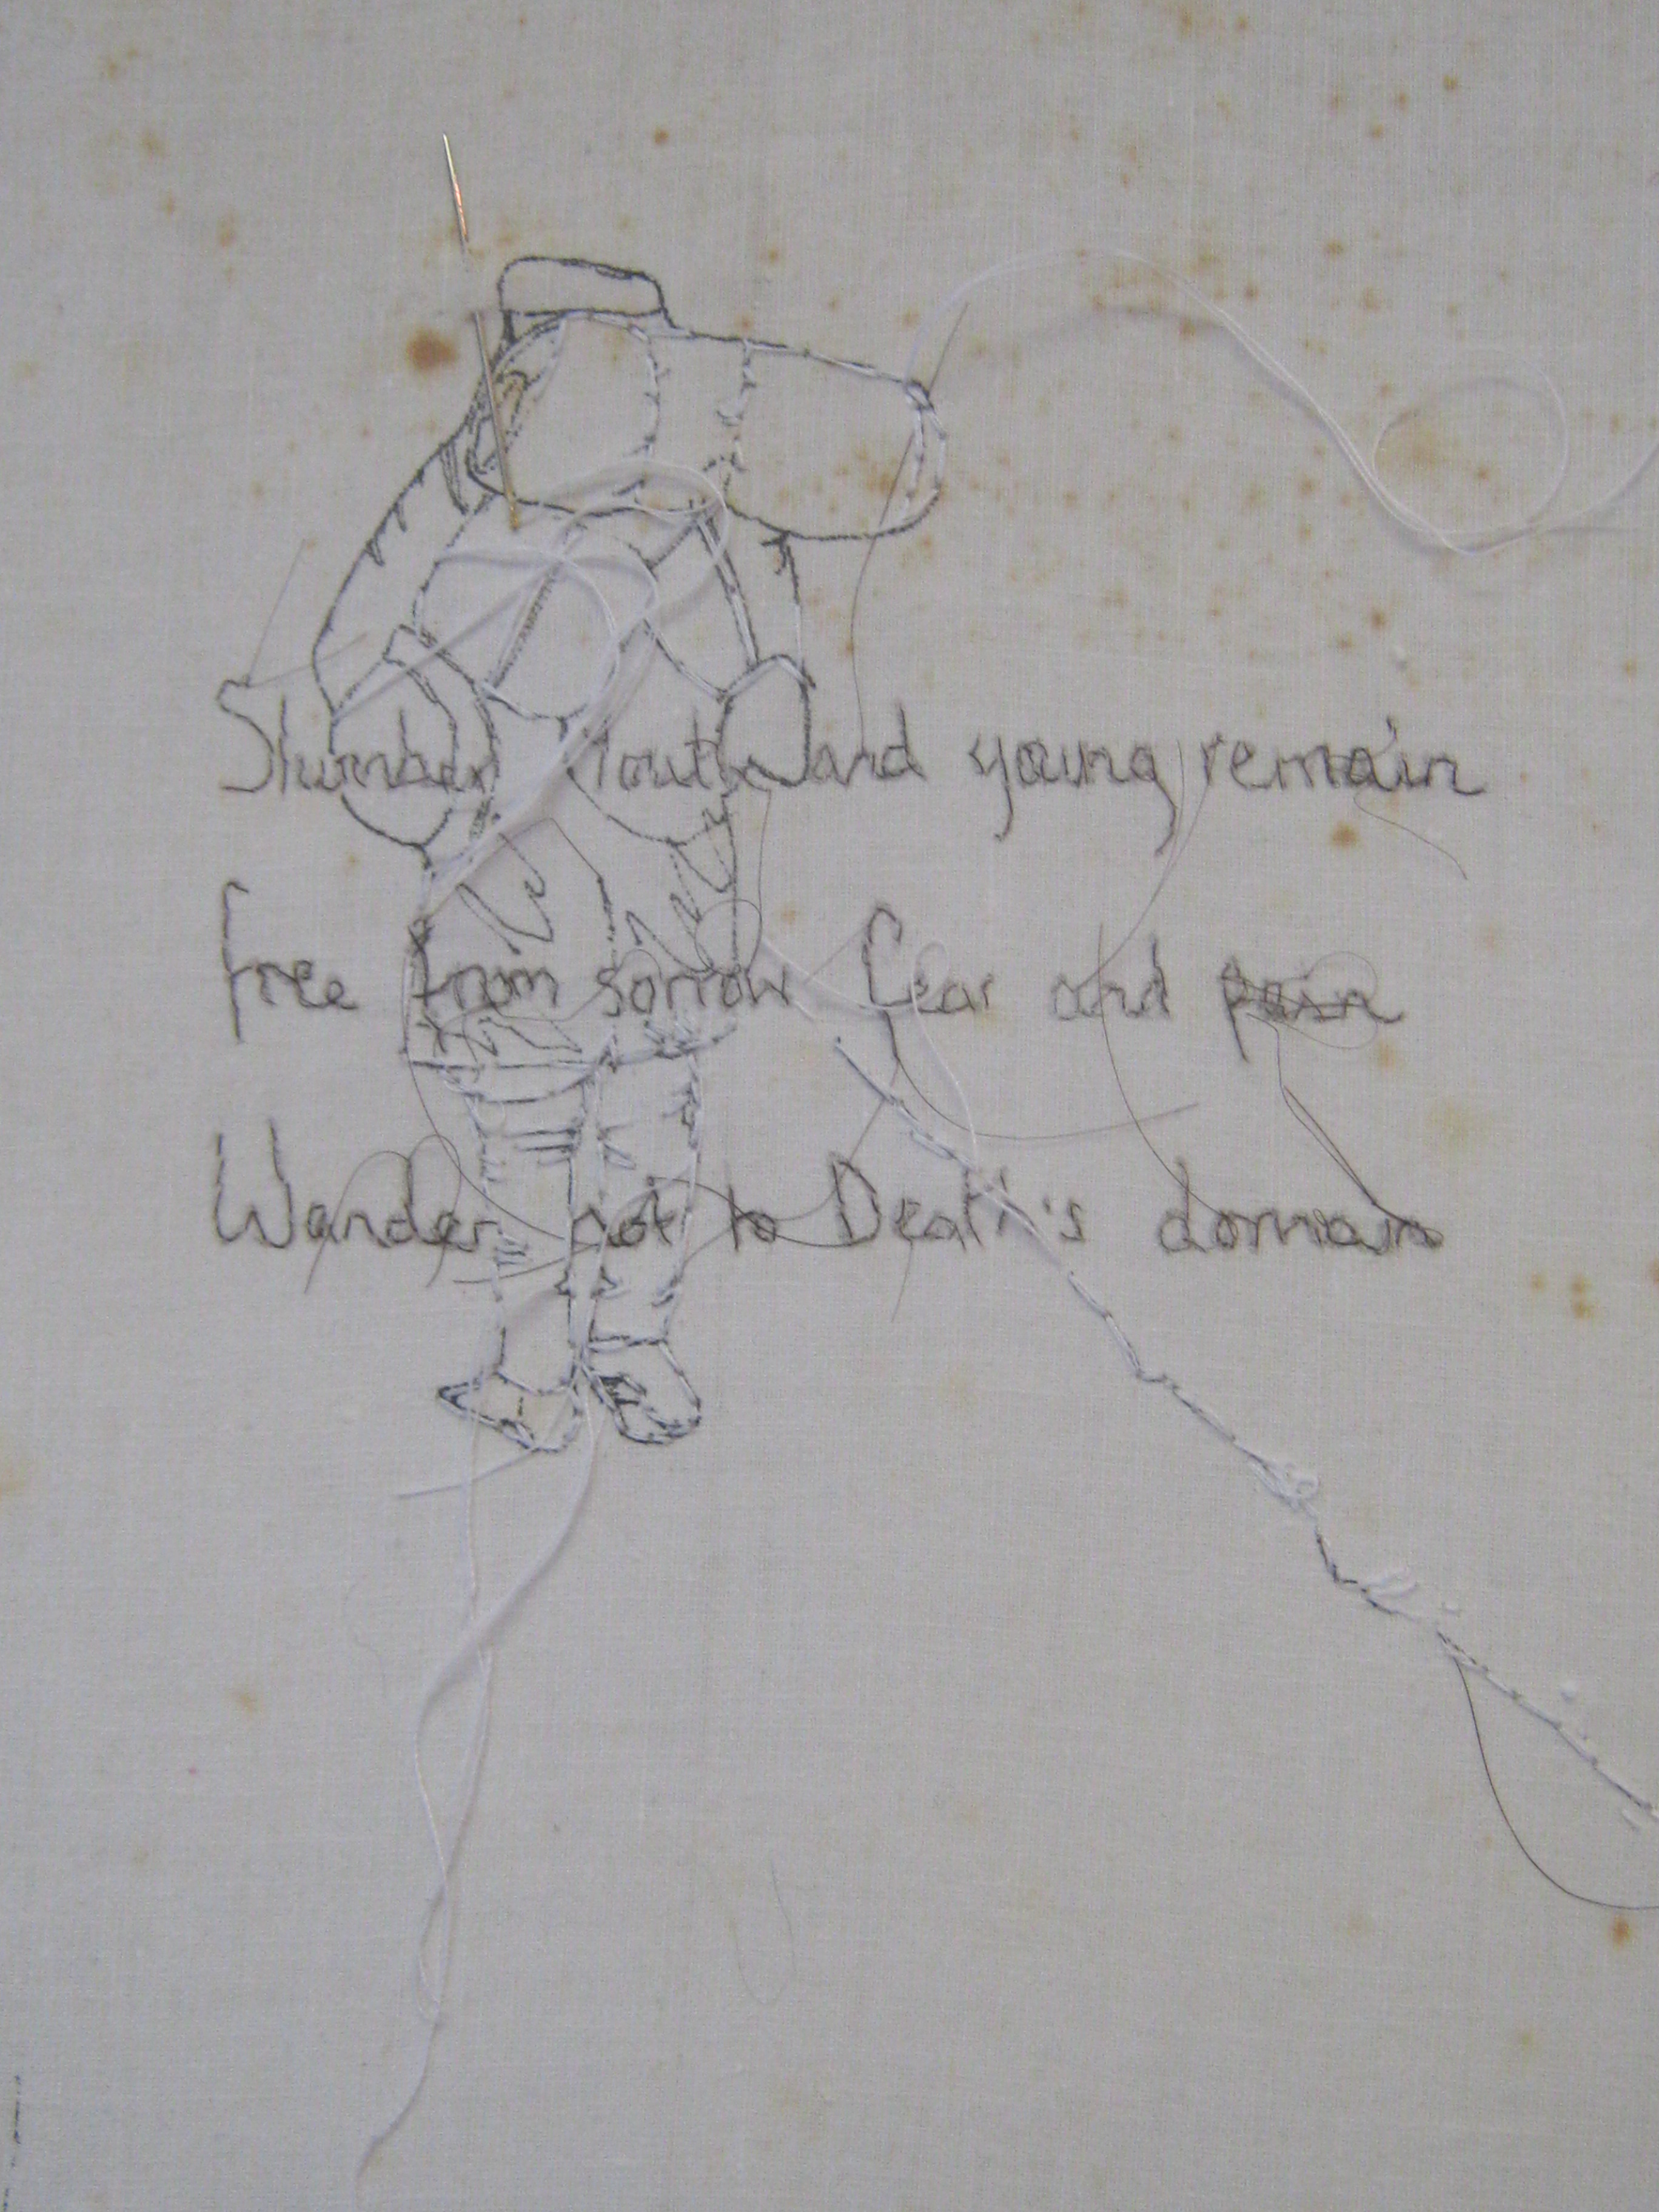 Slumber Youth and young remain
free from sorrow fear and pain
Wander not to Death's domain